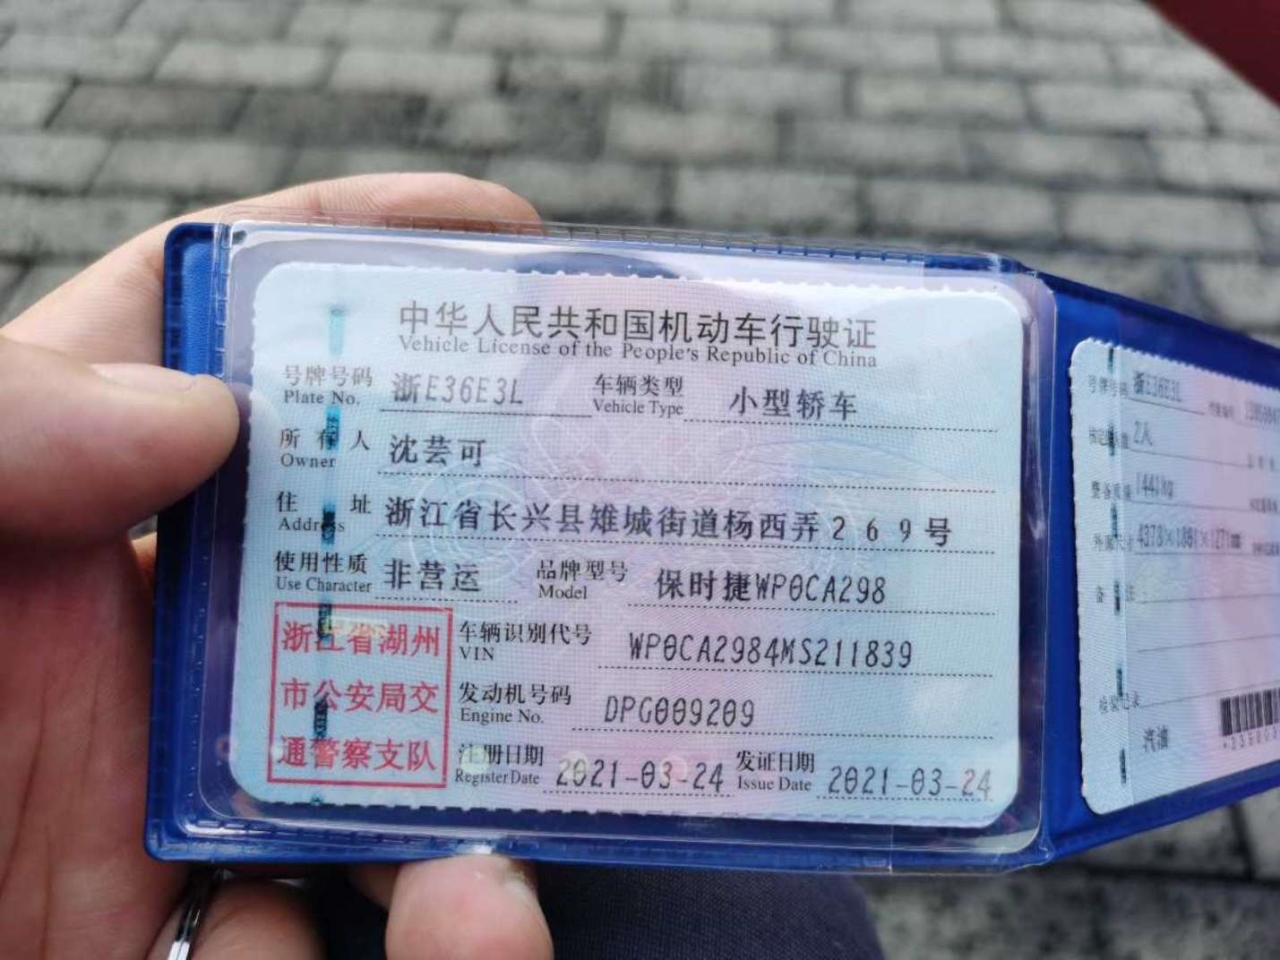 中华人民共和国机动车行驶证
Vehicle License of the People's Republic of China
号牌号码 浙E36E3L 车辆类型 小型轿车
Plate No. Vehicle Type
所有人 沈芸可
Owner
住址 浙江省长兴县雉城街道杨西弄269号
Address
使用性质 非营运 品牌型号 保时捷WP0CA298
Use Character Model
浙江省湖州
市公安局交
通警察支队
车辆识别代号 WP0CA2984MS211839
VIN
发动机号码 DPG009209
Engine No.
注册日期 2021-03-24 发证日期 2021-03-24
Register Date Issue Date
号牌号码 浙E36E3L
2人
整备质量 1441kg
外廓尺寸
备注
检验记录
汽油